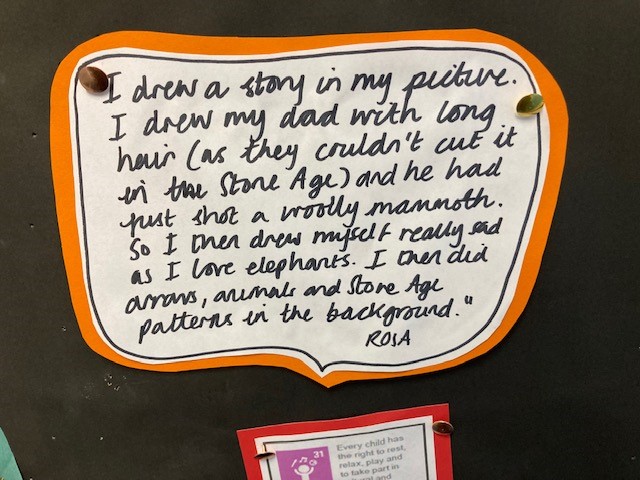 I drew a story in my picture.
I drew my dad with long
hair (as they couldn't cut it
in the Stone Age) and he had
just shot a woolly mammoth.
So I then drew myself really sad
as I love elephants. I then did
arrows, animals and Stone Age
patterns in the background."
ROSA
31
Every child has
the right to rest,
relax, play and
to take part in
and